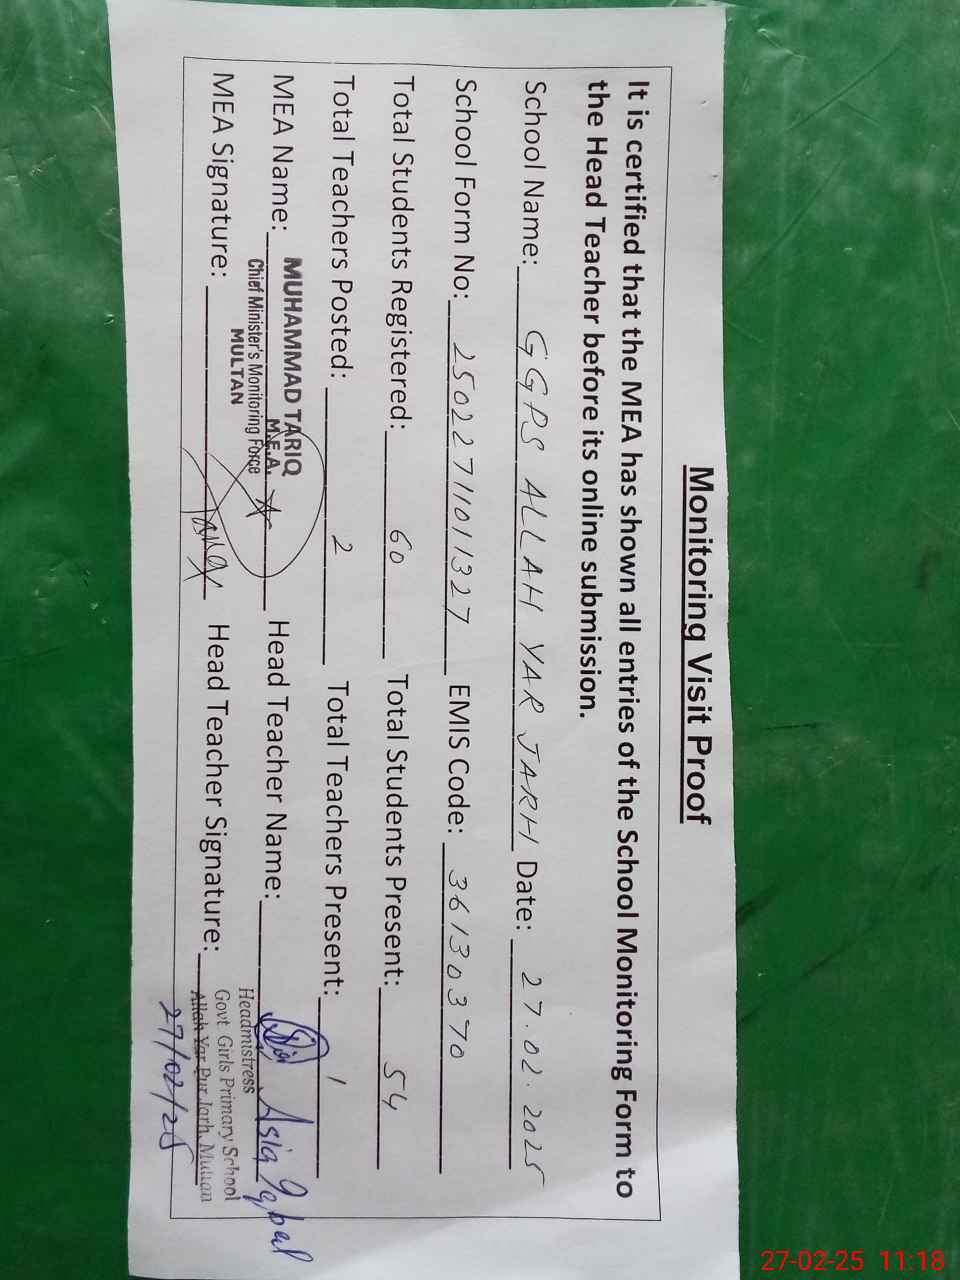 Monitoring Visit Proof
It is certified that the MEA has shown all entries of the School Monitoring Form to
the Head Teacher before its online submission.
School Name: GGPS ALLAH YAR JARH Date: 27.02.2025
School Form No: 25022711011327 EMIS Code: 36130370
Total Students Registered: 60 Total Students Present: 54
Total Teachers Posted: 2 Total Teachers Present: 1
MEA Name: MUHAMMAD TARIQ Head Teacher Name: Asia Iqbal
M.E.A.
Chief Minister's Monitoring Force
MULTAN
MEA Signature: Head Teacher Signature:
Headmistress
Govt Girls Primary School
Allah Yar Pur Jarh Multan
27/02/25
27-02-25 11:18